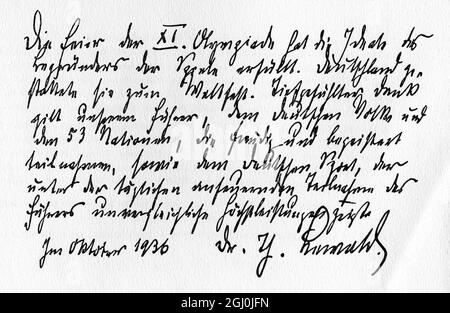 Die Feier der XI. Olympiade hat die Ideale des
Begründers der Spiele erfüllt. Deutschland ge-
staltete sie zum Weltfest. Tiefgefühlter Dank
gilt unserem Führer, dem deutschen Volke und
den 53 Nationen, die freudig und begeistert
teilnahmen, sowie dem deutschen Sport, der
unter der täglichen anfeuernden Teilnahme des
Führers unvergleichliche Höchstleistungen zeigte
Im Oktober 1936 Dr. Th. Lewald.
alamy
Image ID: 2GJ0JFN
www.alamy.com